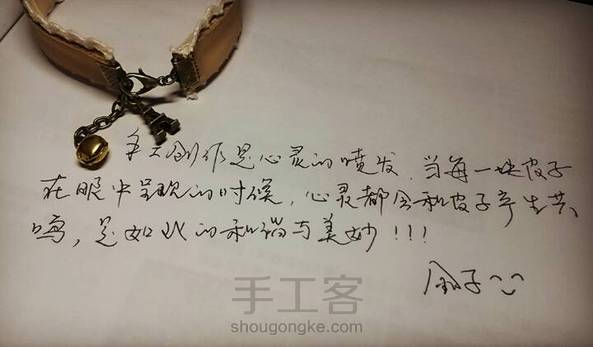 手工创作是心灵的喷发，当每一块皮子
在眼中呈现的时候，心灵都会和皮子产生共
鸣，是如此的和谐与美妙!!!
金子
手工客
shougongke.com